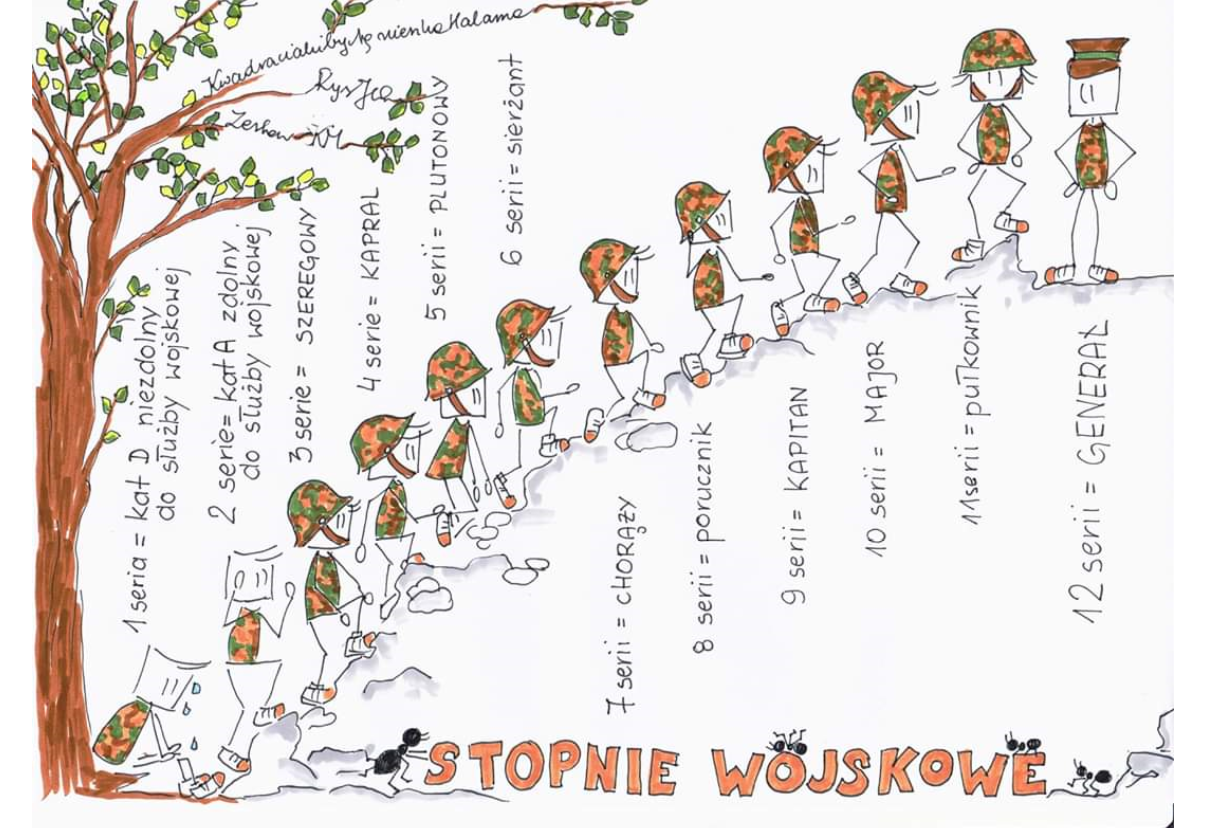 Kwadracialubyć się mienka Halama
RysJca
Zeshaw ŻM
1 seria = kat D niezdolny
do służby wojskowej
2 serie = kat A zdolny
do służby wojskowej
3 serie = SZEREGOWY
4 serie = KAPRAL
5 serii = PLUTONOWY
6 serii = sierżant
7 serii = CHORĄŻY
8 serii = porucznik
9 serii = KAPITAN
10 serii = MAJOR
11 serii = pułkownik
12 serii = GENERAŁ
STOPNIE WOJSKOWE